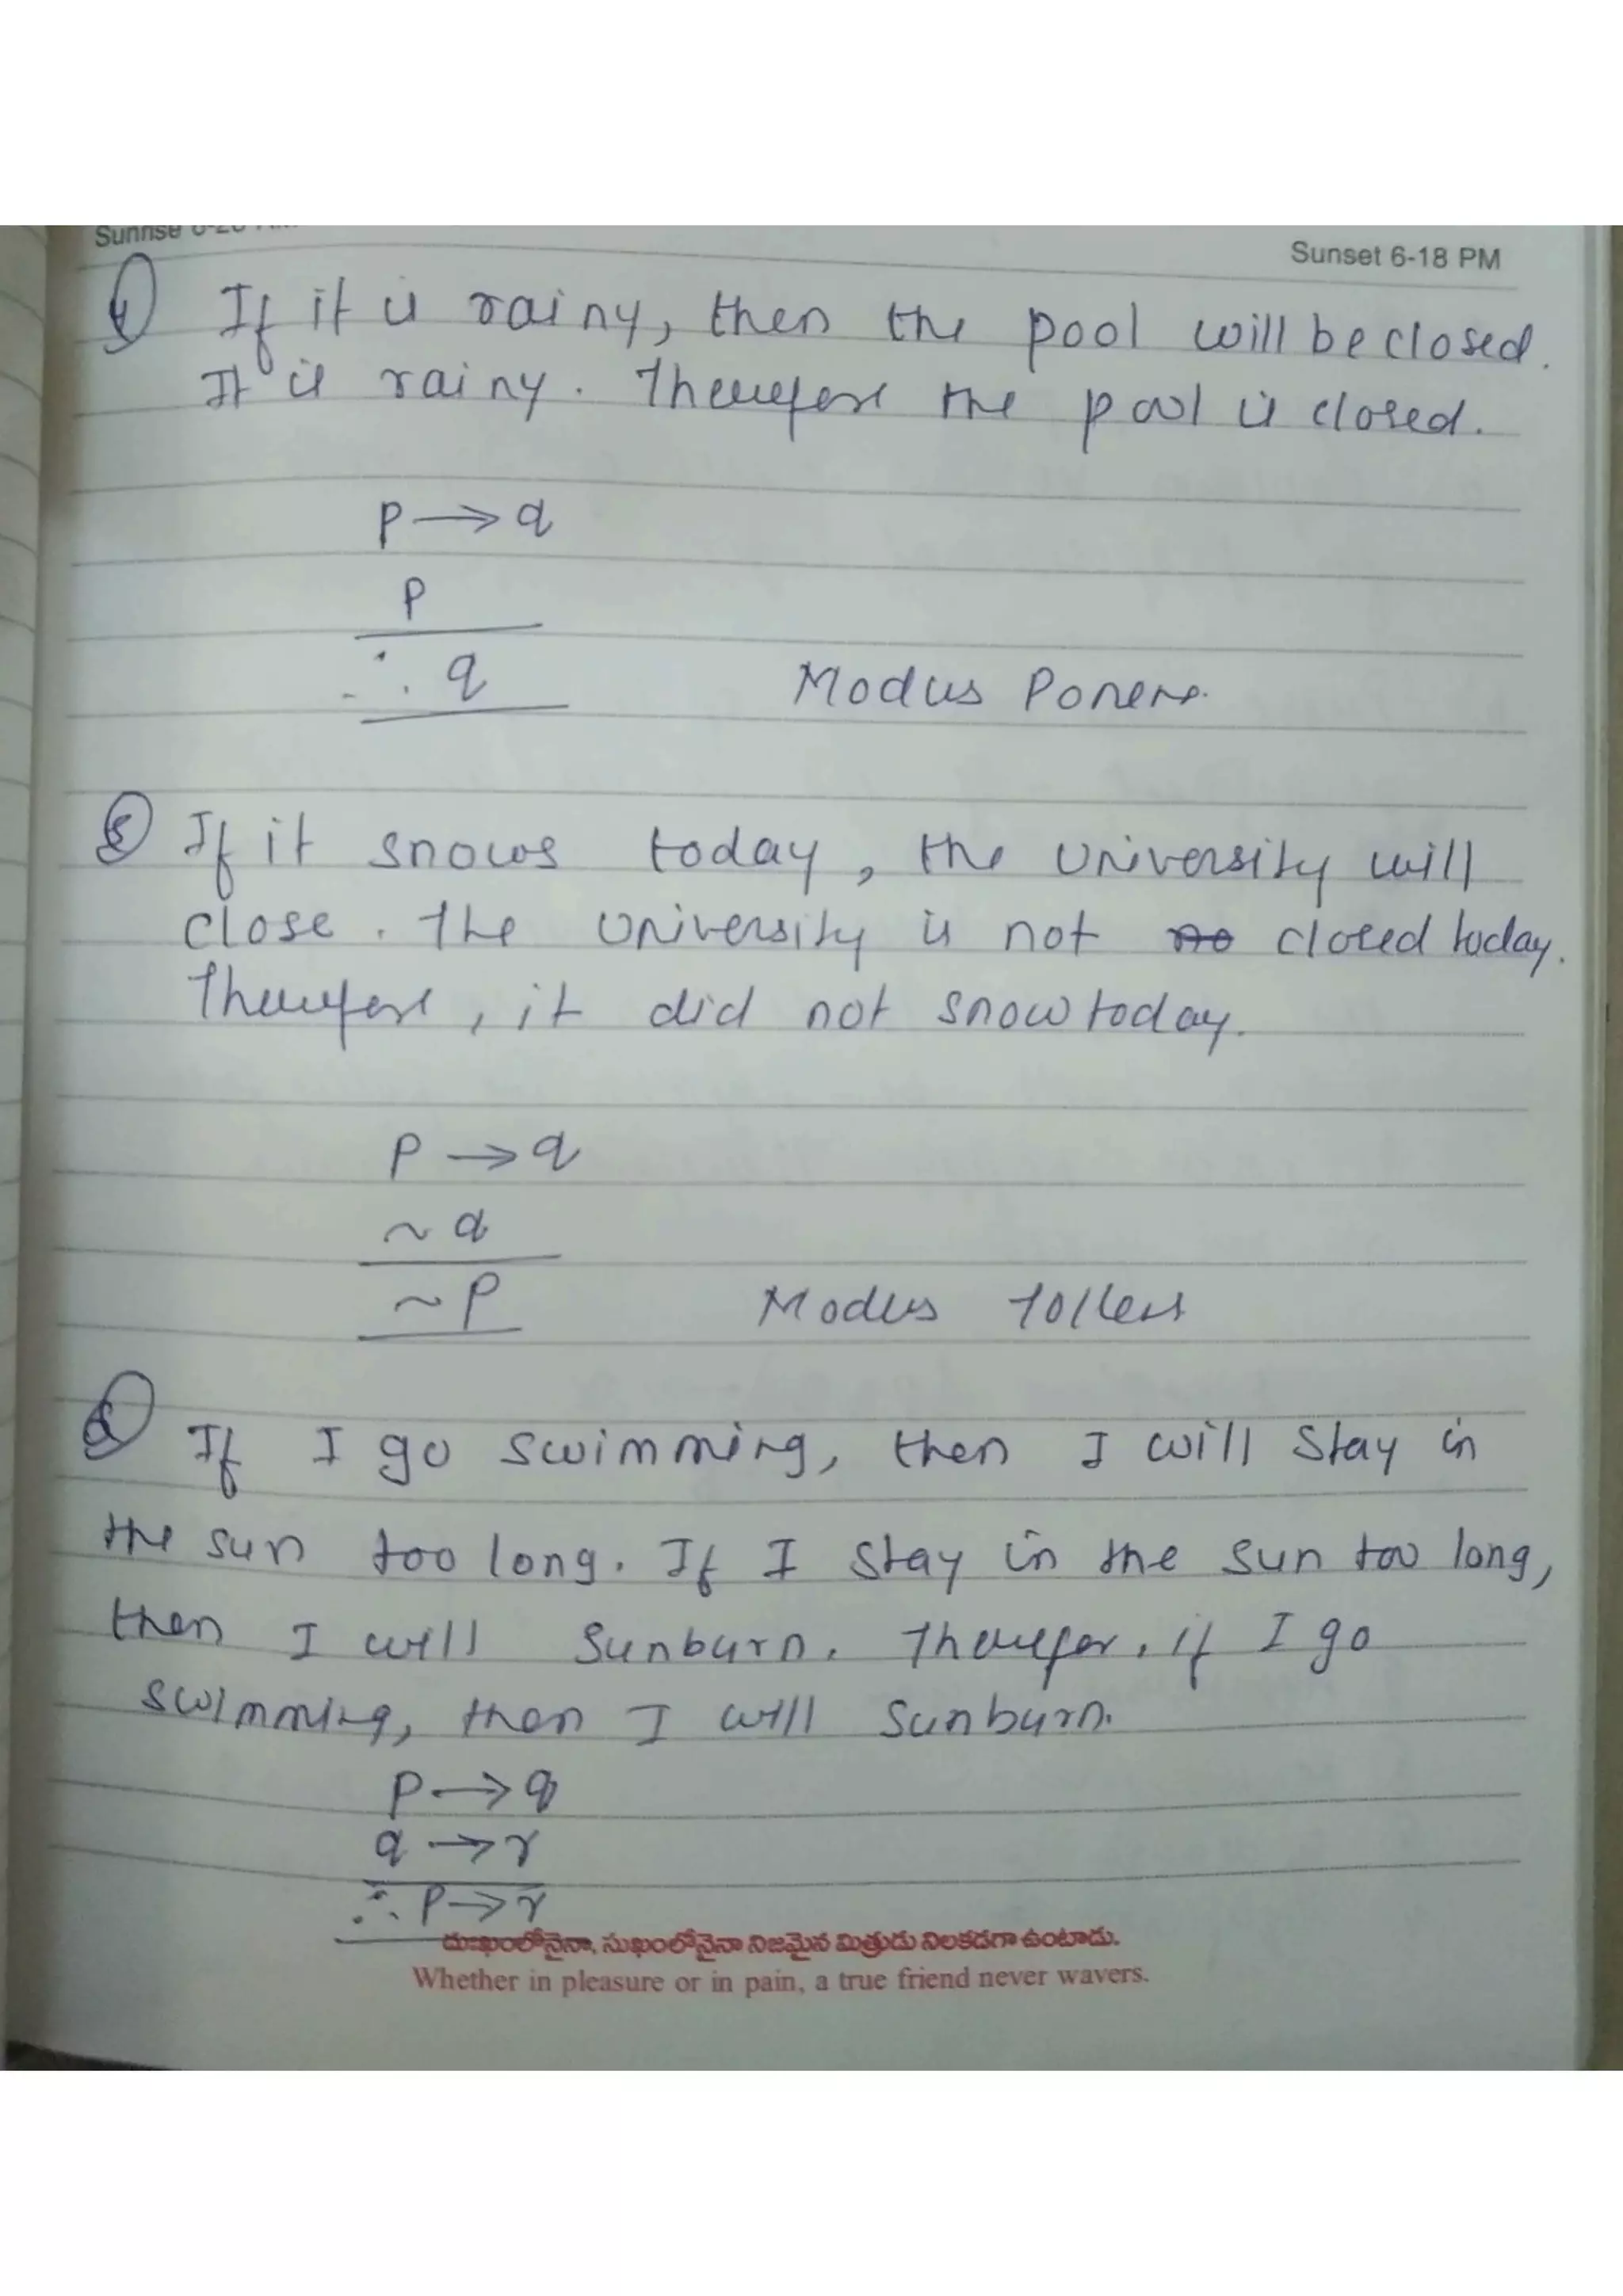 Sunrise 6-20 AM
Sunset 6-18 PM
4) If it is rainy, then the pool will be closed.
It is rainy. Therefore the pool is closed.
p → q
p
∴ q Modus Ponens.
5) If it snows today, the university will
close. The university is not closed today.
Therefore, it did not snow today.
p → q
~q
~p Modus Tollens
6) If I go swimming, then I will stay in
the sun too long. If I stay in the sun too long,
then I will sunburn. Therefor, if I go
swimming, then I will sunburn.
p → q
q → r
∴ p → r
దుఃఖంలోనైనా, సుఖంలోనైనా నిజమైన మిత్రుడు నిలకడగా ఉంటాడు.
Whether in pleasure or in pain, a true friend never wavers.